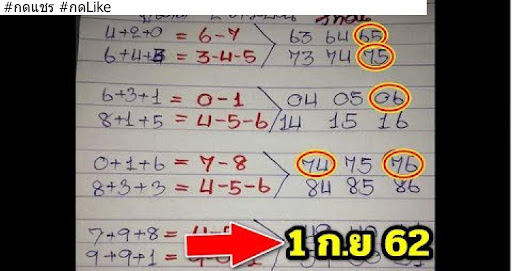 #กดแชร #กดLike
4+2+0 = 6-7 63 64 65
6+4+3 = 3-4-5 73 74 75
6+3+1 = 0-1 04 05 06
8+1+5 = 4-5-6 14 15 16
0+1+6 = 7-8 74 75 76
8+3+3 = 4-5-6 84 85 86
7+9+8 =
9+9+1 =
1 ก.ย 62